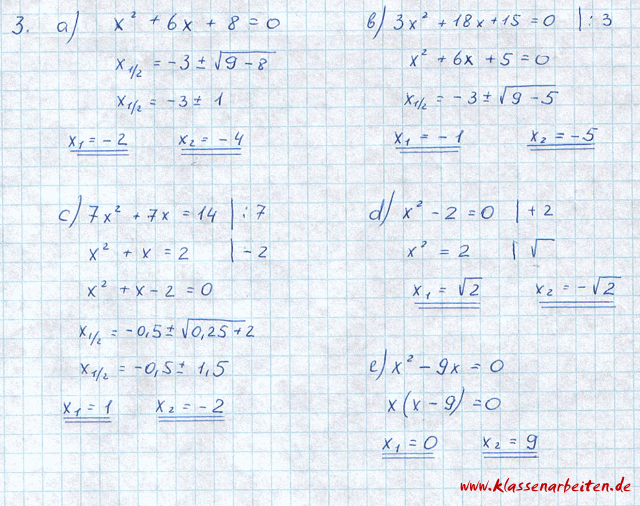 3. a) x² + 6x + 8 = 0
x₁/₂ = -3 ± √9 - 8
x₁/₂ = -3 ± 1
x₁ = -2 x₂ = -4
b) 3x² + 18x + 15 = 0 | : 3
x² + 6x + 5 = 0
x₁/₂ = -3 ± √9 - 5
x₁ = -1 x₂ = -5
c) 7x² + 7x = 14 | : 7
x² + x = 2 | - 2
x² + x - 2 = 0
x₁/₂ = -0,5 ± √0,25 + 2
x₁/₂ = -0,5 ± 1,5
x₁ = 1 x₂ = -2
d) x² - 2 = 0 | + 2
x² = 2 | √
x₁ = √2 x₂ = -√2
e) x² - 9x = 0
x(x - 9) = 0
x₁ = 0 x₂ = 9
www.klassenarbeiten.de